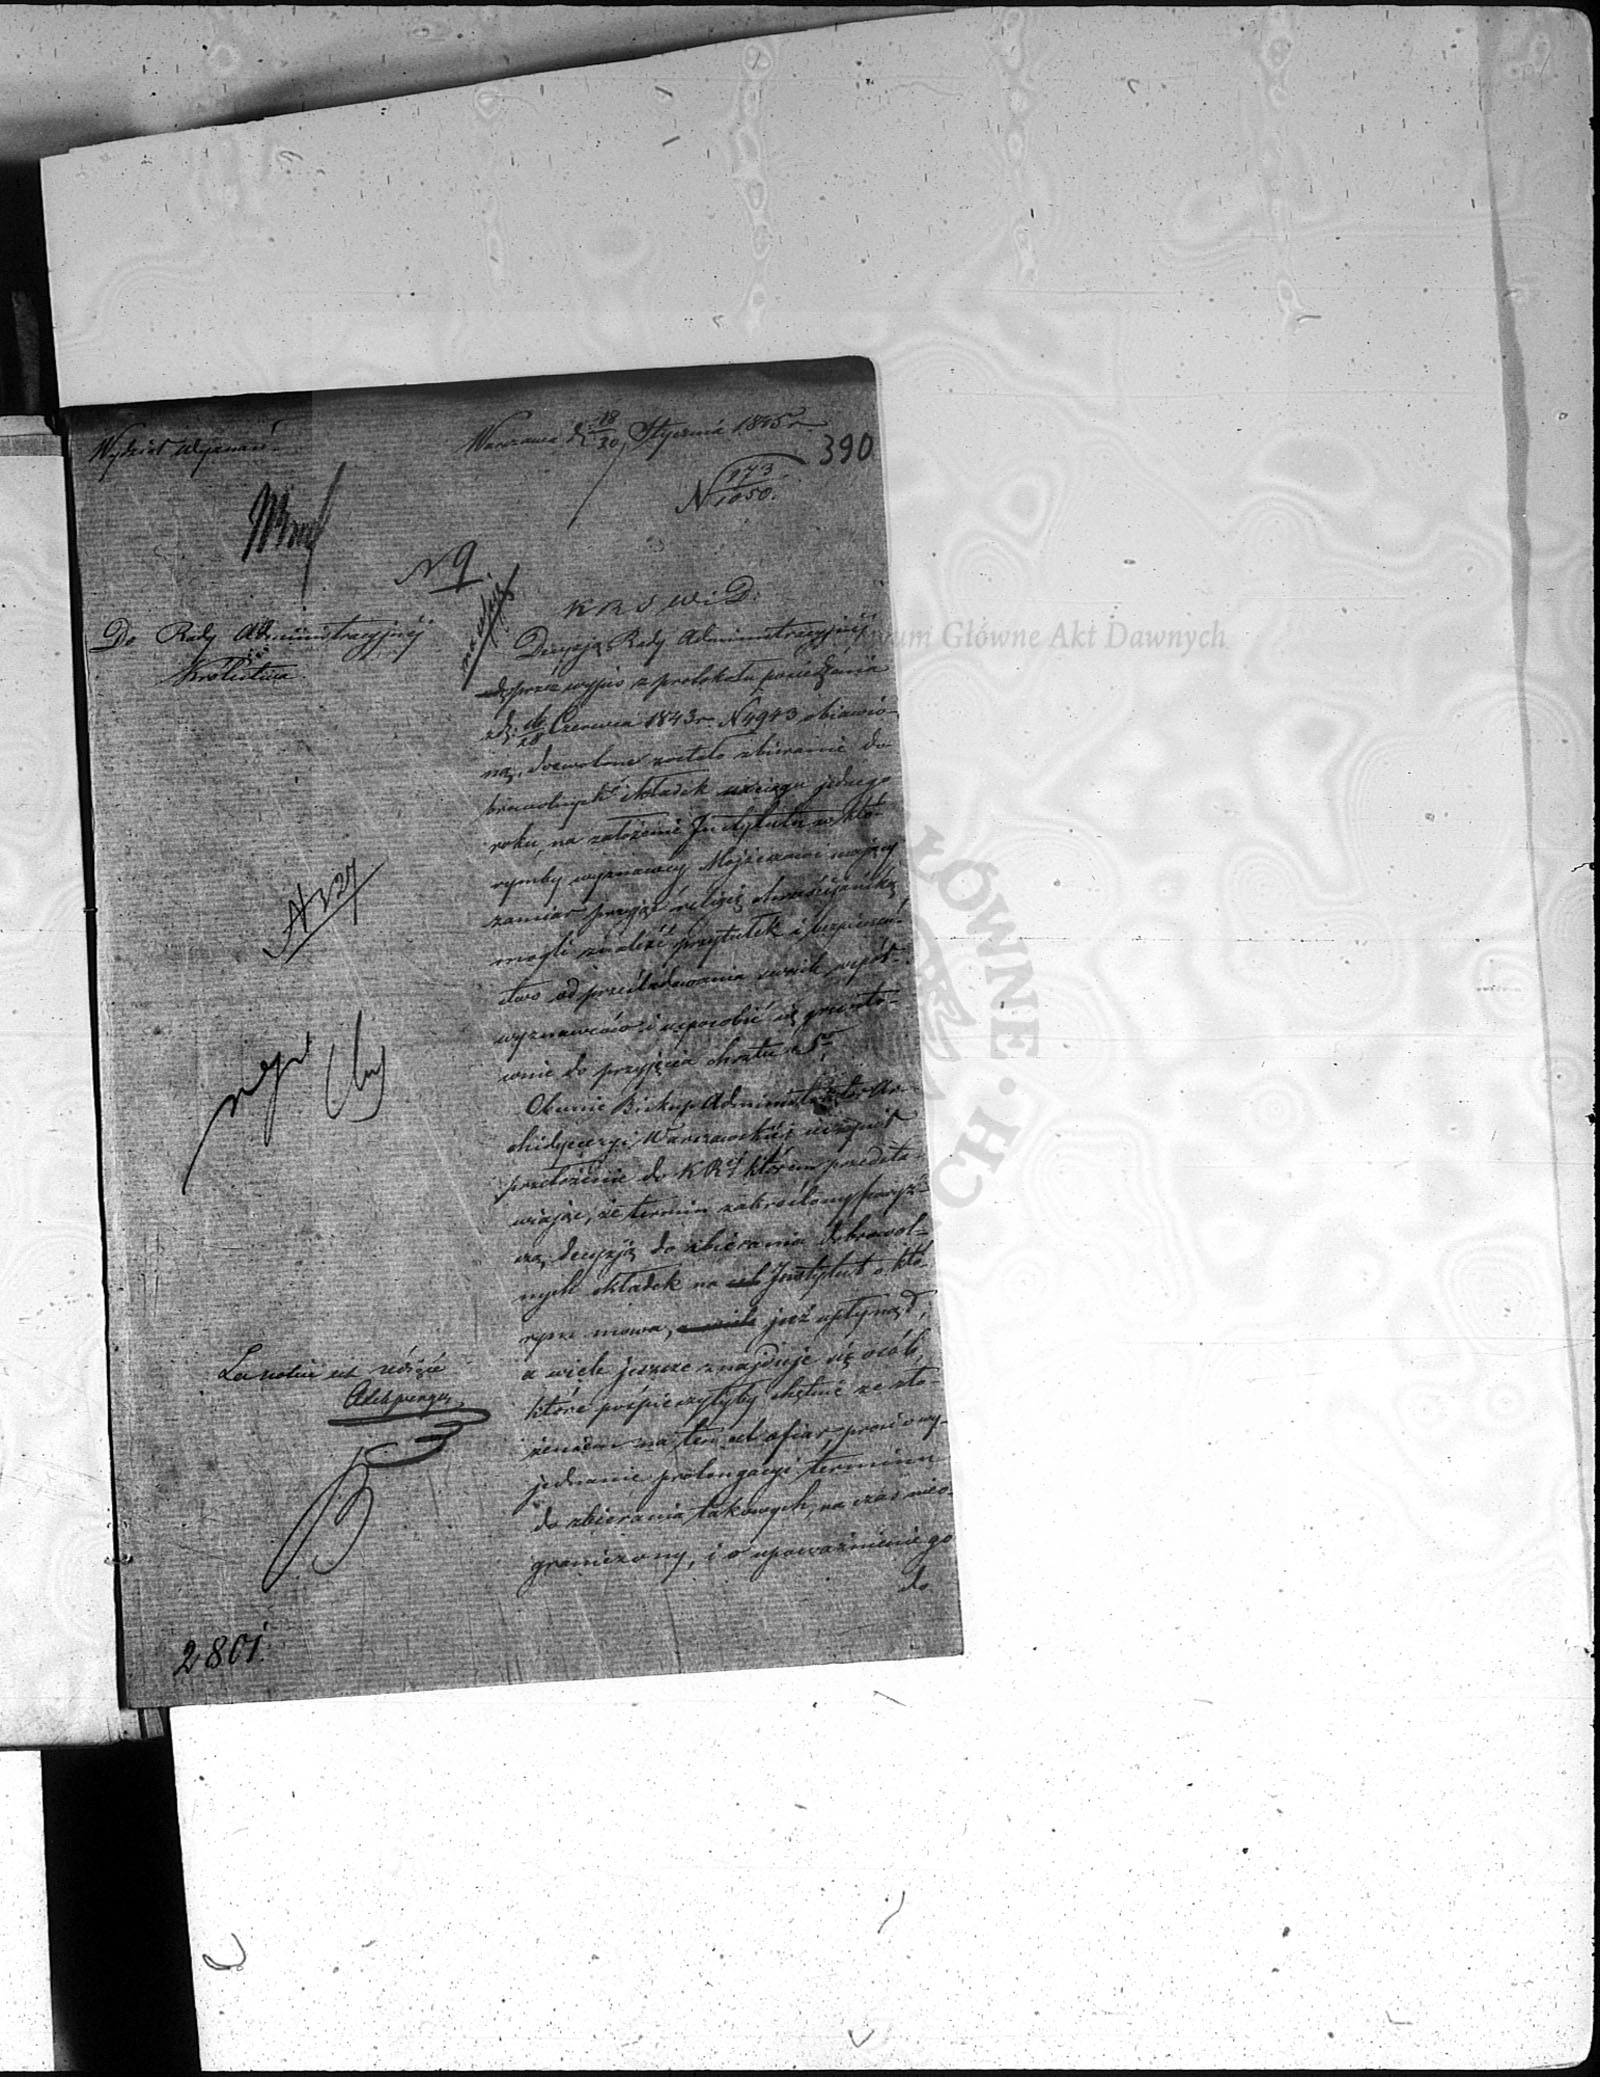 Wydział Wyznań
Warszawa d. 18/30 Stycznia 1845 r.
390
N 173/1050.
N 9
Do Rady Administracyjnéj
Królestwa
K R S W i D.
Decyzją Rady Administracyjnéj
przez wypis z protokołu posiedzenia
z d. 16/28 Czerwca 1843 r. N 4943 obiawio-
ną, dozwolone zostało zbieranie do-
browolnych składek w ciągu jednego
roku, na założenie Instytutu w któ-
rymby wyznawcy Mojżeszowi mający
zamiar przyjąć religię chrześcijańską
mogli znaleźć przytułek i bezpieczeń-
stwo od prześladowania swoich współ-
wyznawców i usposobić się grunto-
wnie do przyjęcia chrztu S°
Obecnie Biskup Administrator Ar-
chidyecezyi Warszawskiéj uczynił
przełożenie do K R w którem przedsta-
wiając, że termin zakreślony powyż-
szą decyzją do zbierania dobrowol-
nych składek na Instytut o któ-
rym mowa, już upłynął,
a wiele jeszcze znajduje się osób,
które pośpieszyłyby chętnie ze zło-
żeniem na ten cel ofiar, prosi o wy-
jednanie prolongacyi terminu
do zbierania takowych, na czas nieo-
graniczony, i o upoważnienie go
do
2801.
Główne Akt Dawnych